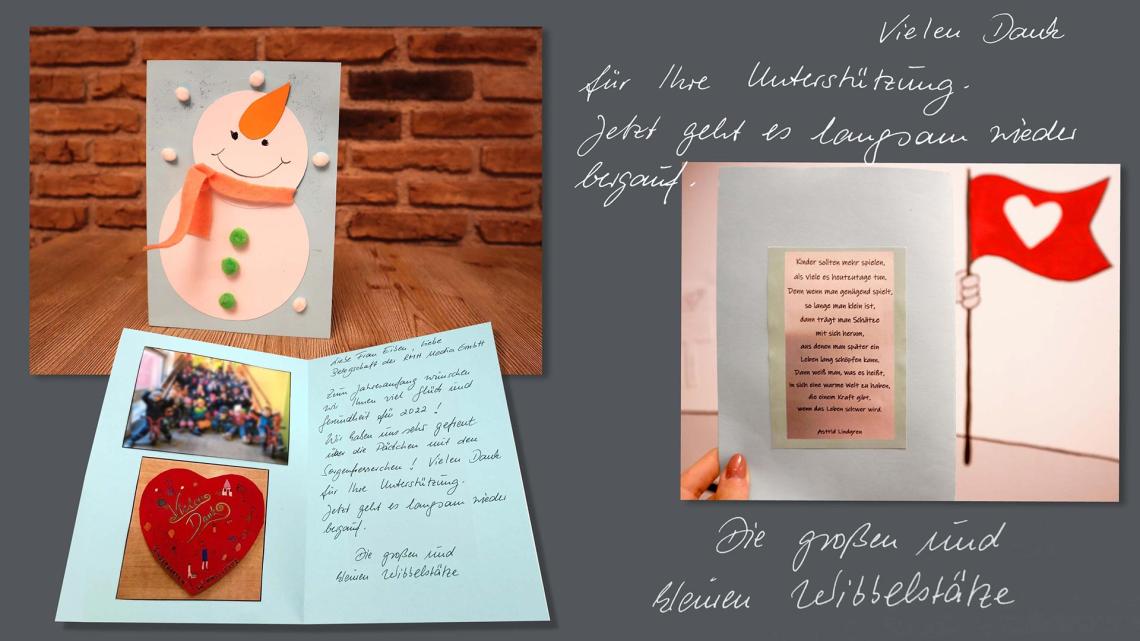 Vielen Dank
für Ihre Unterstützung.
Jetzt geht es langsam wieder
bergauf.
Liebe Frau Eiben, liebe
Belegschaft der RMH Media GmbH
Zum Jahresanfang wünschen
wir Ihnen viel Glück und
Gesundheit für 2022!
Wir haben uns sehr gefreut
über die Päckchen mit den
Sorgenfresserchen! Vielen Dank
für Ihre Unterstützung.
Jetzt geht es langsam wieder
bergauf.
Die großen und
kleinen Wibbelstätze
Vielen
Dank
Kinder sollten mehr spielen,
als viele es heutzutage tun.
Denn wenn man genügend spielt,
so lange man klein ist,
dann trägt man Schätze
mit sich herum,
aus denen man später ein
Leben lang schöpfen kann.
Dann weiß man, was es heißt,
in sich eine warme Welt zu haben,
die einem Kraft gibt,
wenn das Leben schwer wird.
Astrid Lindgren
Die großen und
kleinen Wibbelstätze